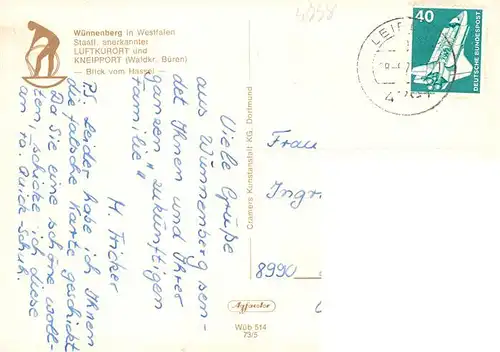 Wünnenberg in Westfalen
Staatl. anerkannter
LUFTKURORT und
KNEIPPORT (Waldkr. Büren)
— Blick vom Hassel —
4558
Viele Grüße
aus Wünnenberg sen-
det Ihnen und Ihrer
ganzen "zukünftigen
Familie"
H. Fricker
P.S. Leider habe ich Ihnen
die falsche Karte geschickt
Da Sie eine schöne woll-
ten, schicke ich diese
an Fa. Quick-Schuh.
Cramers Kunstanstalt KG, Dortmund
Agfacolor
Wüb 514
73/5
40
DEUTSCHE BUNDESPOST
Frau
Ingr
8990